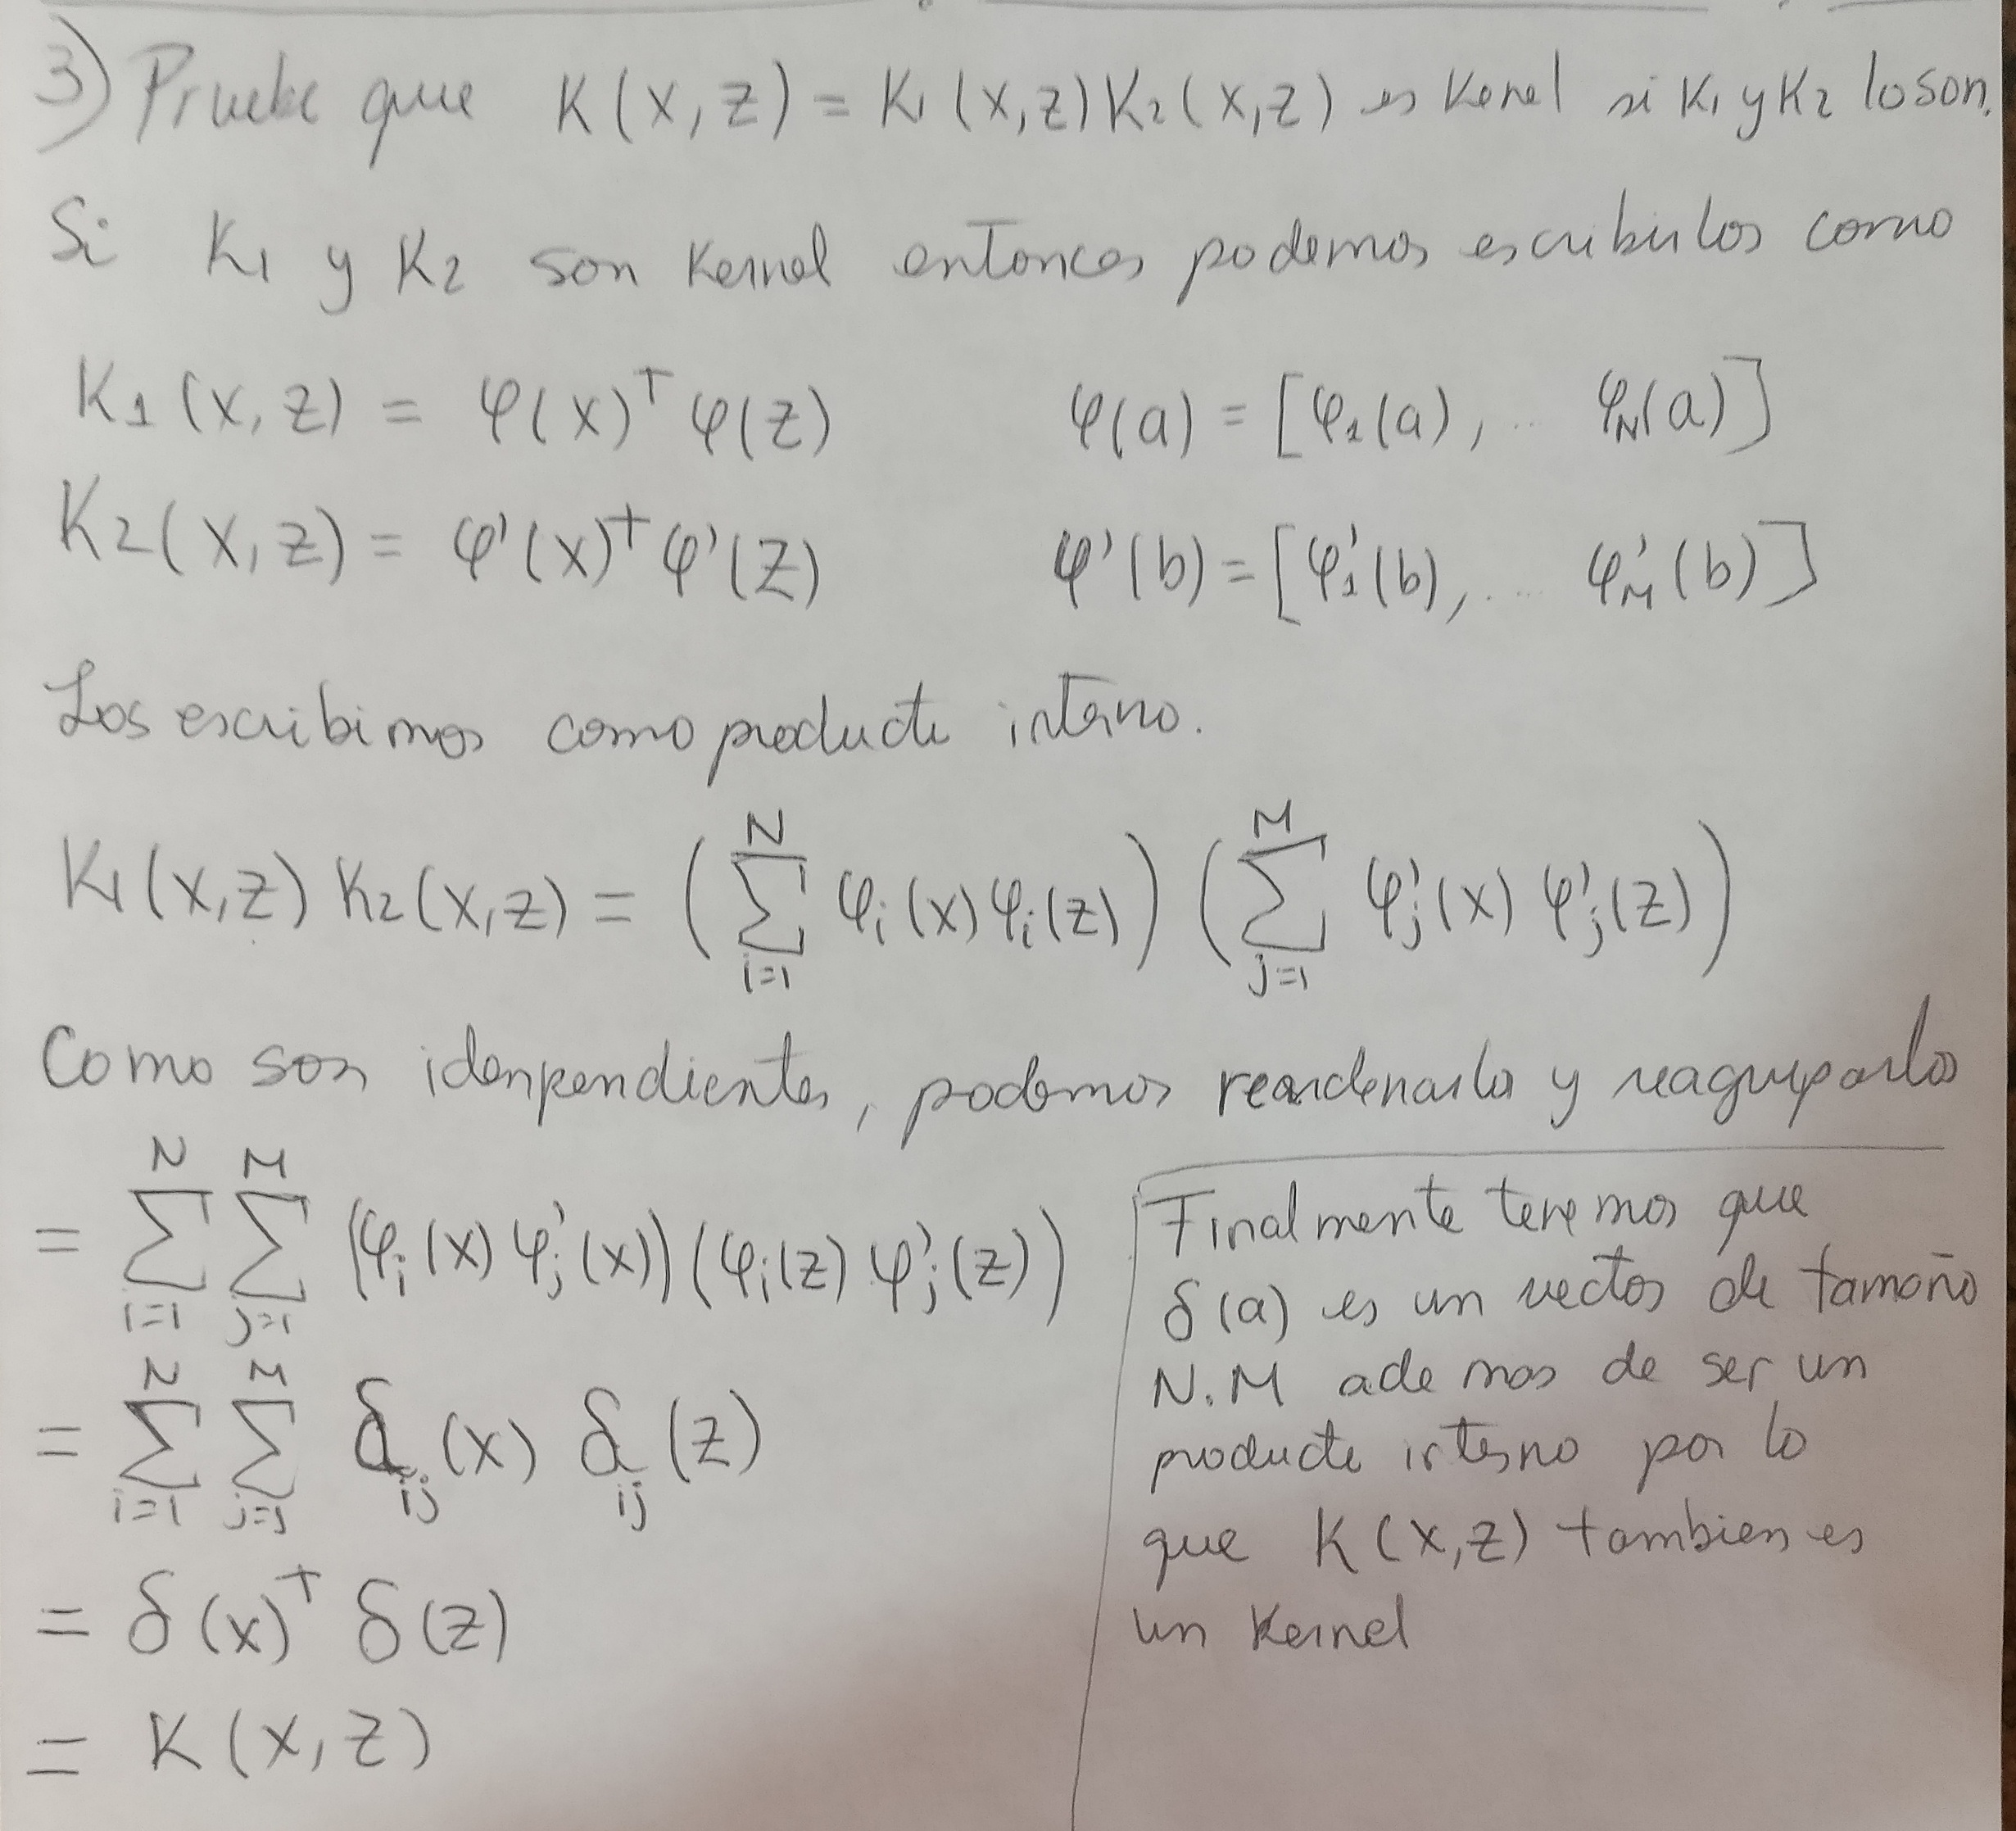 3) Pruebe que K(x,z) = K₁(x,z)K₂(x,z) es Kenel si K₁ y K₂ lo son.
Si K₁ y K₂ son Kernel entonces podemos escribirlos como
K₁(x,z) = φ(x)ᵀ φ(z) φ(a) = [φ₁(a), ... φ_N(a)]
K₂(x,z) = φ'(x)ᵀ φ'(z) φ'(b) = [φ'₁(b), .... φ'_M(b)]
Los escribimos como producto interno.
K₁(x,z) K₂(x,z) = (∑_{i=1}^{N} φᵢ(x) φᵢ(z)) (∑_{j=1}^{M} φ'ⱼ(x) φ'ⱼ(z))
Como son idenpendientes, podemos reordenarlo y reagruparlo
= ∑_{i=1}^{N} ∑_{j=1}^{M} (φᵢ(x) φ'ⱼ(x)) (φᵢ(z) φ'ⱼ(z))
= ∑_{i=1}^{N} ∑_{j=1}^{M} δ_{ij}(x) δ_{ij}(z)
= δ(x)ᵀ δ(z)
= K(x,z)
Finalmente tenemos que
δ(a) es un vector de tamaño
N.M ademas de ser un
producto interno por lo
que K(x,z) tambien es
un Kernel